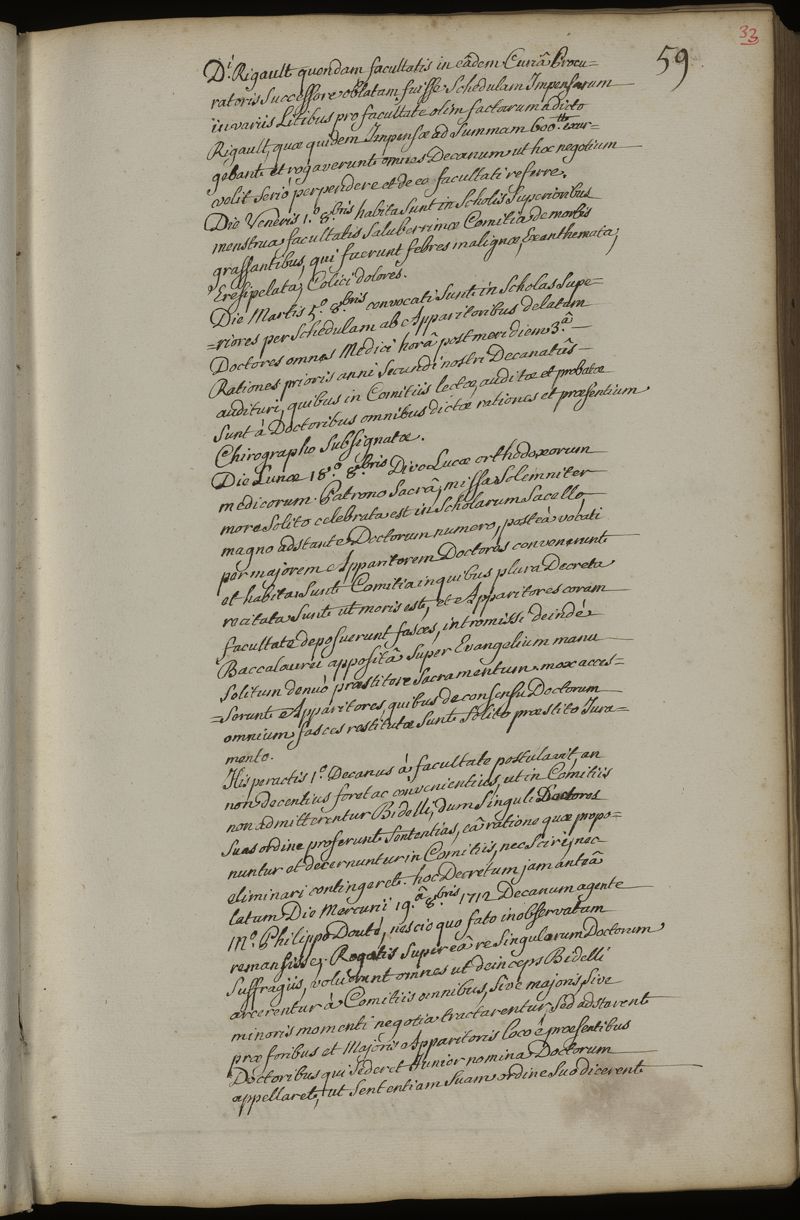 33
59
D.i Rigault quondam facultatis in eâdem Curiâ Procu=
ratoris Successore oblatam fuisse Schedulam Impensarum
in variis Litibus pro facultate olim factarum à dicto
Rigault, quæ quidem Impensæ ad Summam 600.tt exur-
gebant et rogaverunt omnes Decanum ut hoc negotium
velit Seriò perpendere et de eo facultati referre.
Die Veneris 1.o 8.bris habita Sunt in Scholis Superioribus
menstrua facultatis Saluberrimæ Comitia de morbis
grassantibus, qui fuerunt febres malignæ, Exanthemata;
Eresipelata; Colici dolores.
Die Martis 5.o 8.bris convocati Sunt in Scholas Supe=
=riores per Schedulam ab Apparitoribus delatam
Doctores omnes Medici horâ post meridiem 3.â
Rationes prioris anni Secundi nostri Decanatûs
audituri, quibus in Comitiis lectæ, auditæ et probatæ
Sunt à Doctoribus omnibus dictæ rationes et præsentium
Chirographo Subsignatæ.
Die Lunæ 18.o 8.bris Divo Lucæ orthodoxorum
medicorum Patrono Sacrâ, missa Solemniter
more Solito celebrata est in Scholarum Sacello
magno adstante Doctorum numero, posteà vocati
per majorem Apparitorem Doctores convenerunt
et habita Sunt Comitia in quibus plura Decreta
recitata Sunt ut moris est, et Apparitores coram
facultate deposuerunt fasces, intromissi deindè
Baccalaurei appositâ Super Evangelium manu
Solitum denuò præstitere Sacramentum mox acces=
=Serunt Apparitores, quibus de consensu Doctorum
omnium fasces restitutæ Sunt Solito præstito Jura=
mento.
His peractis 1.o Decanus à facultate postulavit, an
non decentius foret ac convenientius, ut in Comitiis
non admitterentur Bidelli, dum Singuli Doctores
Suas ordine proferunt Sententias, eâ ratione quæ propo=
nuntur et decernuntur in Comitiis, nec Sciri, nec
eliminari contingeret. hoc Decretum jam anteâ
latum Die Mercurii 19.â 8.bris 1712 Decanum agente
M.o Philippo Douté, nescio quo fato inobservatum
remansisse. Rogatis Super eâ re Singulorum Doctorum
Suffragiis, voluerunt omnes ut deinceps Bidelli
arcerentur à Comitiis omnibus, Sive majoris, Sive
minoris momenti negotia tractarentur Sed adstarent
præ foribus et Majoris Apparitoris loco è præsentibus
Doctoribus qui Sederet Junior nomina Doctorum
appellaret, ut Sententiam Suam ordine Suo dicerent